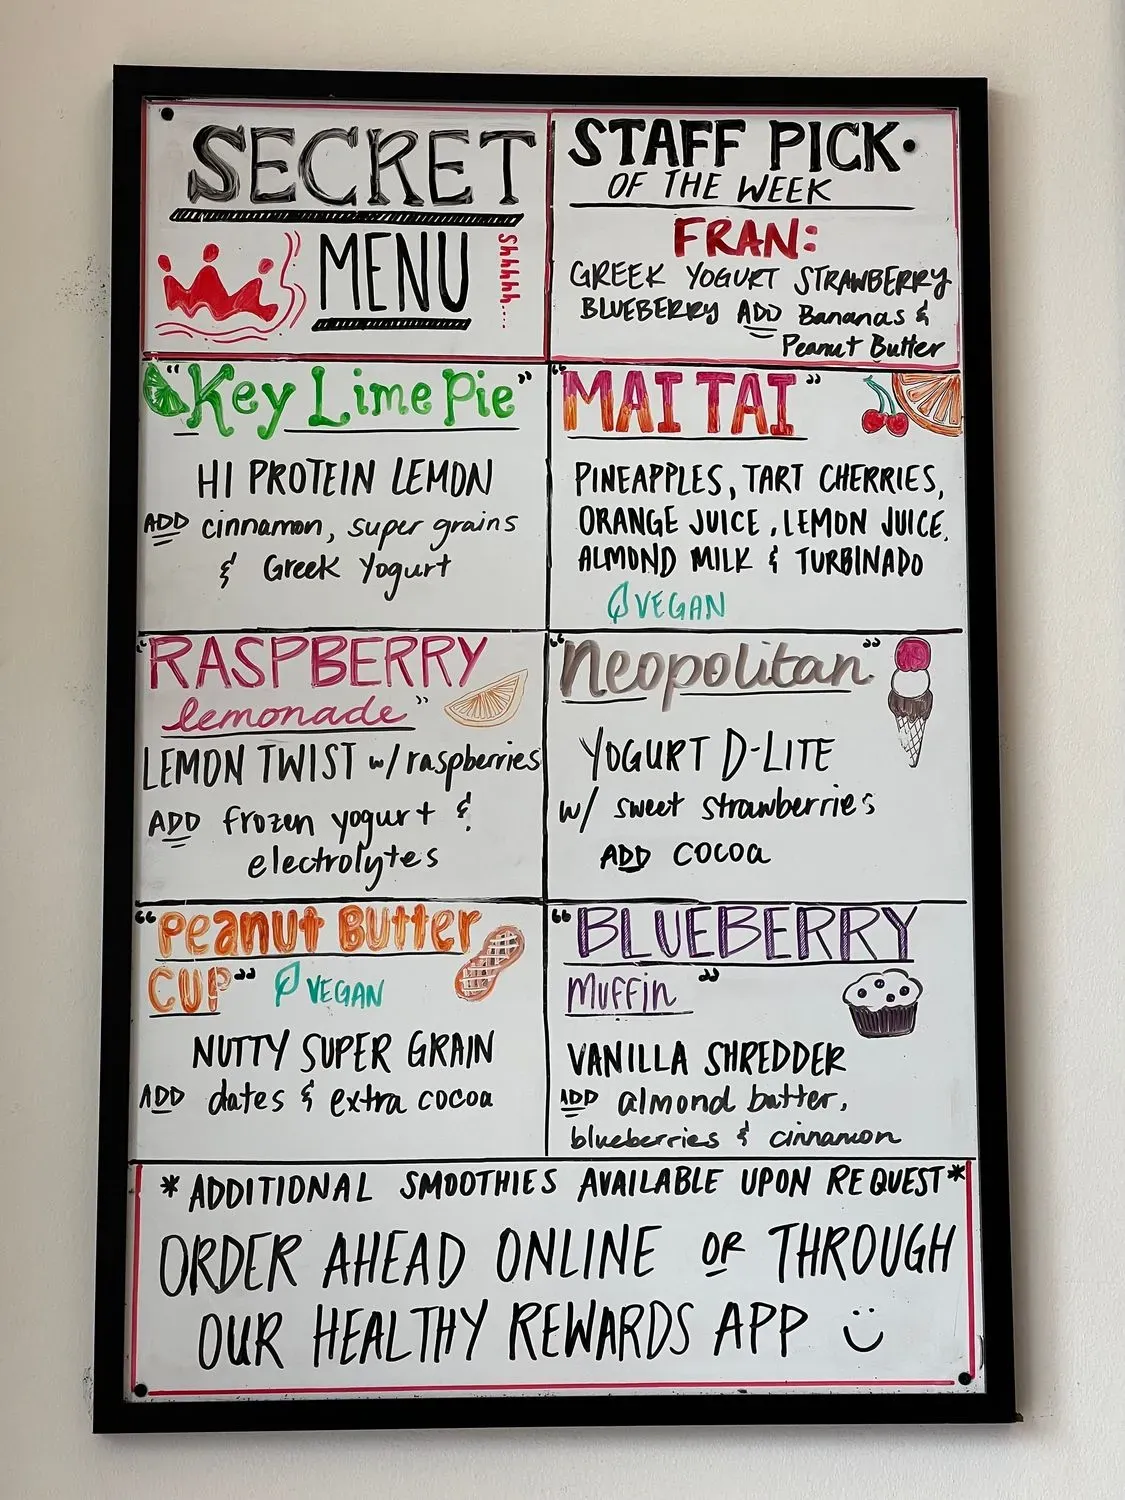 SECRET
MENU
Shhhhh....
STAFF PICK
OF THE WEEK
FRAN:
GREEK YOGURT STRAWBERRY
BLUEBERRY ADD Bananas &
Peanut Butter
"Key Lime Pie"
HI PROTEIN LEMON
ADD cinnamon, super grains
& Greek Yogurt
"MAI TAI"
PINEAPPLES, TART CHERRIES,
ORANGE JUICE, LEMON JUICE,
ALMOND MILK & TURBINADO
VEGAN
"RASPBERRY
lemonade"
LEMON TWIST w/ raspberries
ADD frozen yogurt &
electrolytes
"Neopolitan"
YOGURT D-LITE
w/ sweet strawberries
ADD cocoa
"Peanut Butter
CUP" VEGAN
NUTTY SUPER GRAIN
ADD dates & extra cocoa
"BLUEBERRY
Muffin"
VANILLA SHREDDER
ADD almond butter,
blueberries & cinnamon
*ADDITIONAL SMOOTHIES AVAILABLE UPON REQUEST*
ORDER AHEAD ONLINE OR THROUGH
OUR HEALTHY REWARDS APP